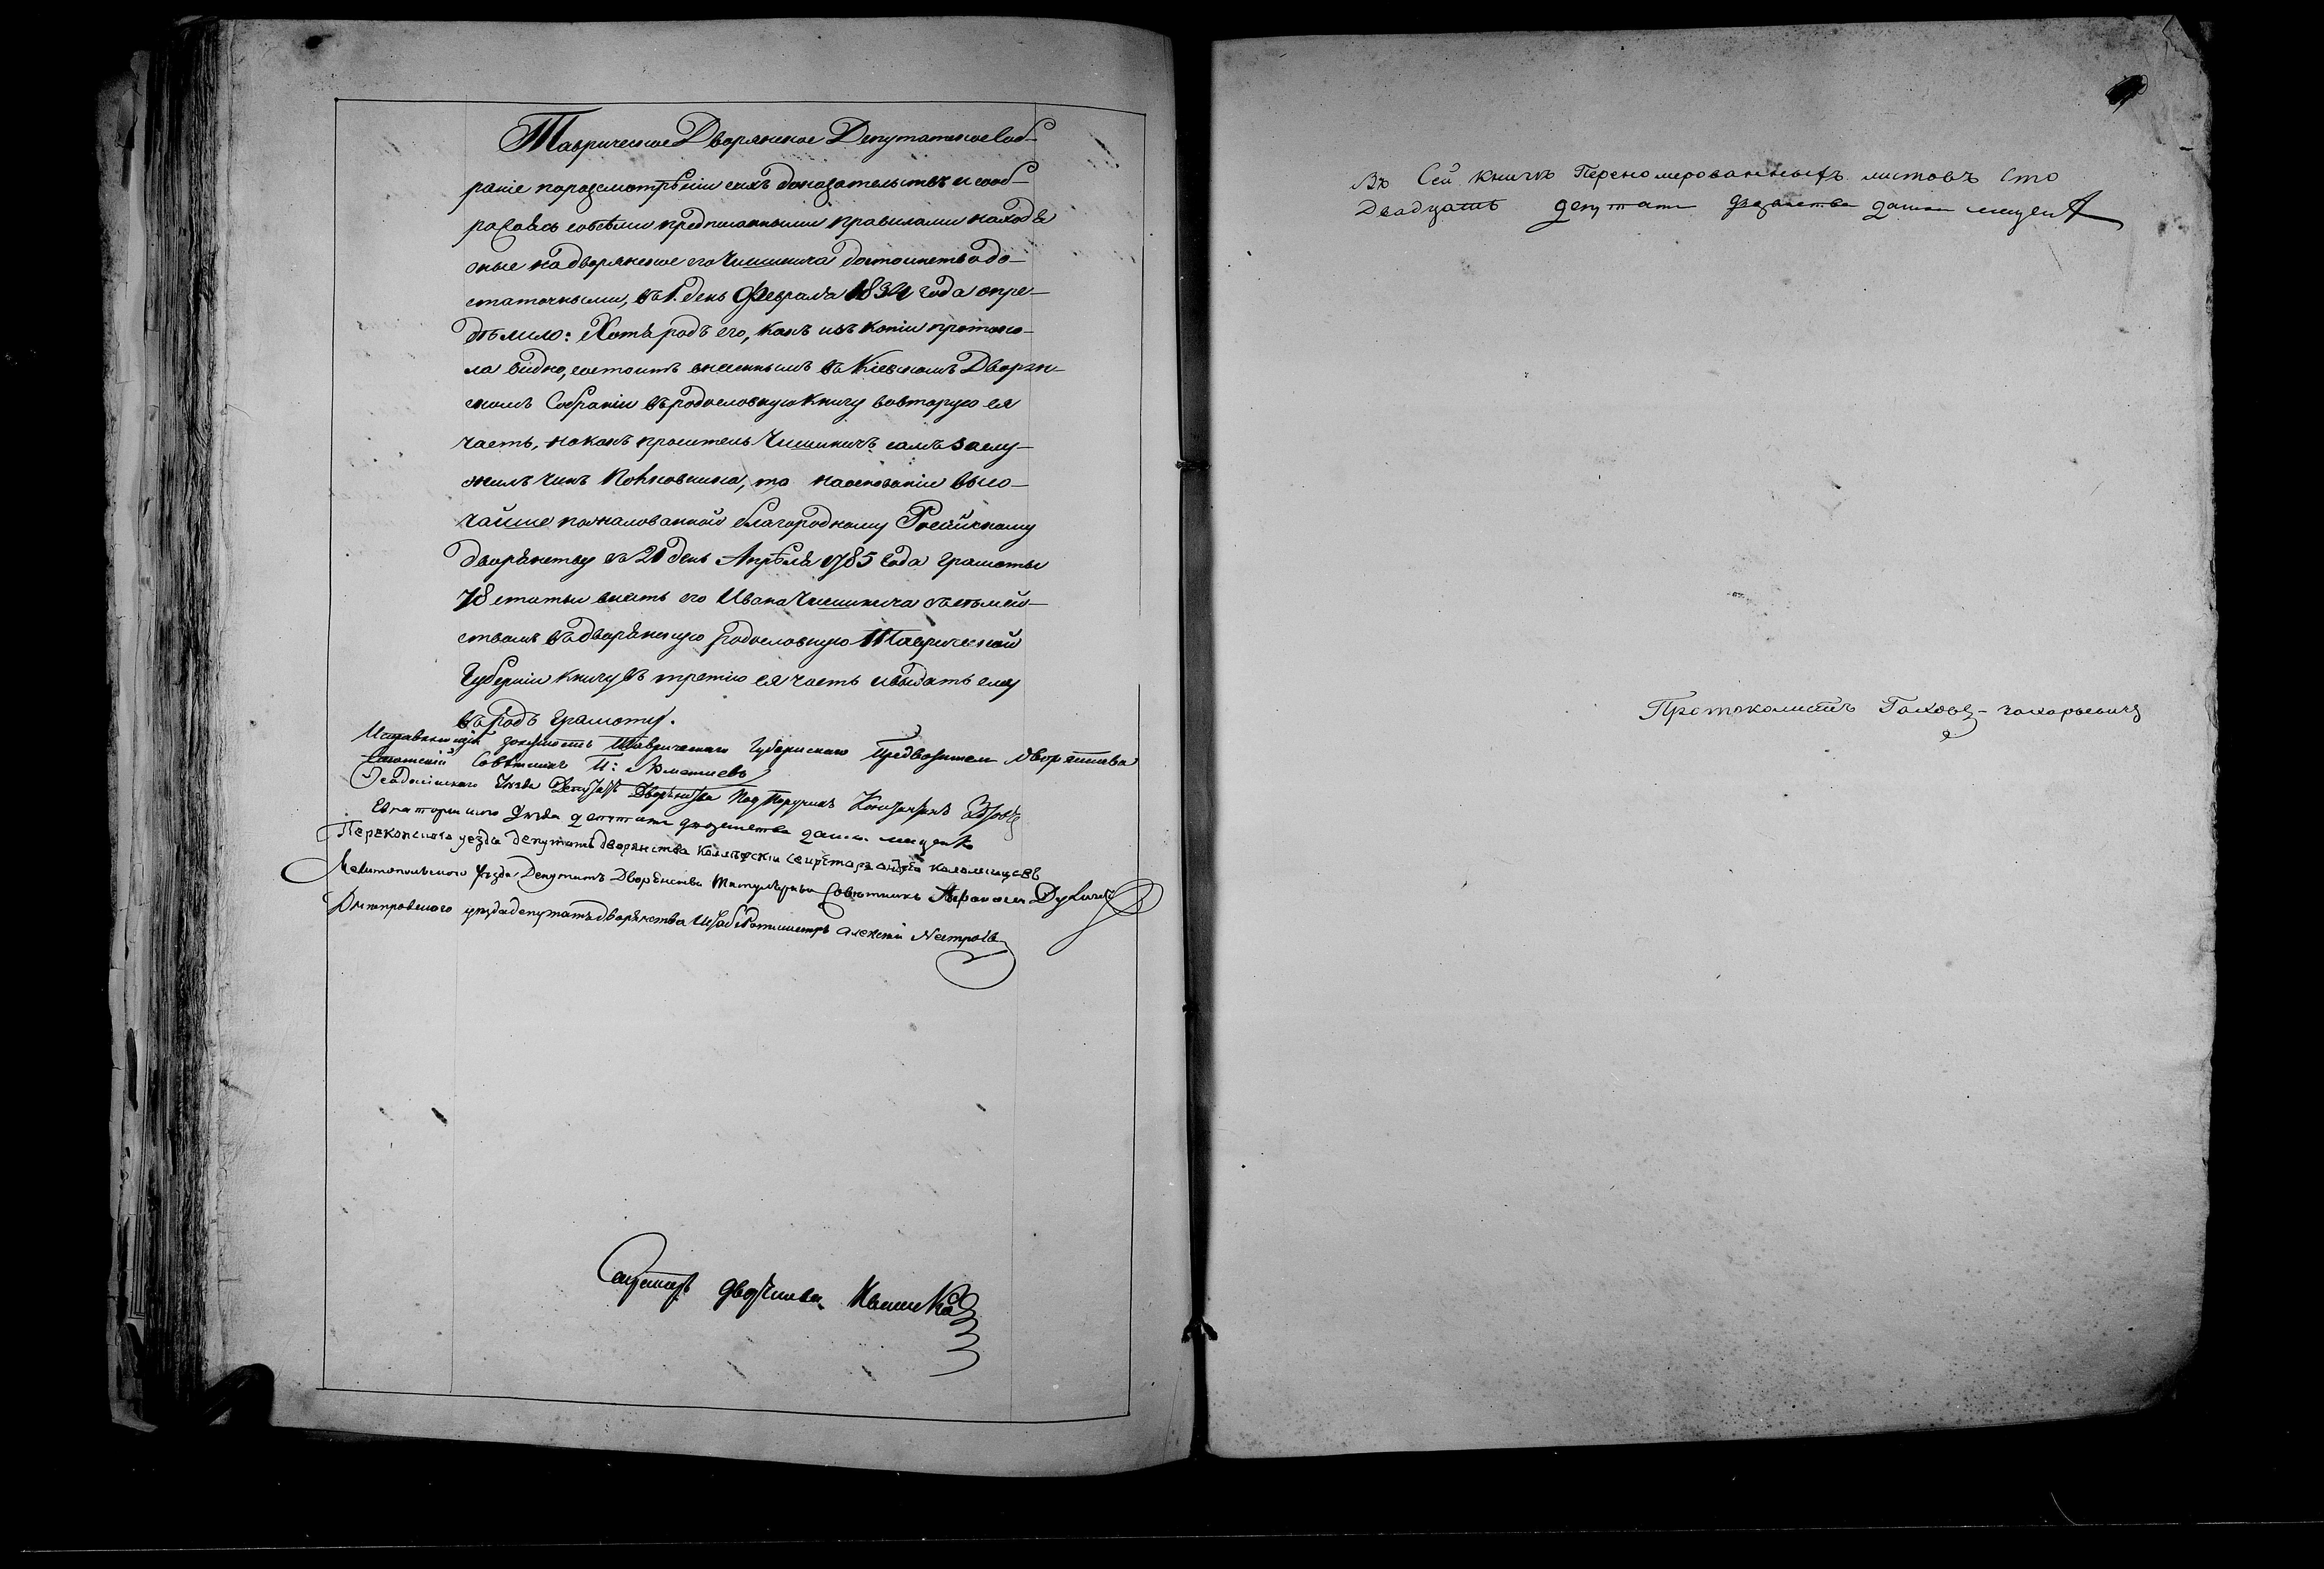 Таврическое Дворянское Депутатское Соб-
раніе поразсмотрѣніи сихъ доказательствъ и сооб-
разаясь совсѣми предписанными правилами находя
оные надворянское его Чишкевича достоинство до-
статочными, въ 1. день Февраля 1834 года опре-
дѣлило: Хотя родъ его, какъ изъ копіи протоко-
ла видно, состоитъ внесеннымъ въ Кіевскомъ Дворян-
скомъ Собраніи въ родословную книгу вовторую ея
часть, но какъ проситель самъ заслу-
жилъ чинъ Полковника, то наоснованіи высо-
чайше пожалованной благородному Россійскому
дворянству въ 21 день Апрѣля 1785 года грамоты
78 статьи внесть его Ивана съ сѣмей-
ствомъ въ дворянскую родословную Таврической
Губерніи книгу въ третію ея часть и выдать ему
въ родъ грамоту.
должность Таврическаго Губернскаго Предводителя дворянства
Совѣтникъ
Ѳеодосійскаго Уѣзда Депутатъ Дворянства Подпоручикъ
Евпаторійскаго Уѣзда депутатъ дворянства
Перекопскаго уезда депутатъ дворянства Колежскій Секретарь
Мелитопольскаго уѣзда Депутатъ Дворянства Титулярный Совѣтникъ
Днепровскаго уѣзда депутатъ дворянства Штабсъ Ротмистръ Алексѣй
Секретарь дворянства
Въ Сей книгѣ Перено­мерованныхъ листовъ Сто
Двадцать депутатъ дворянства
Протоколистъ